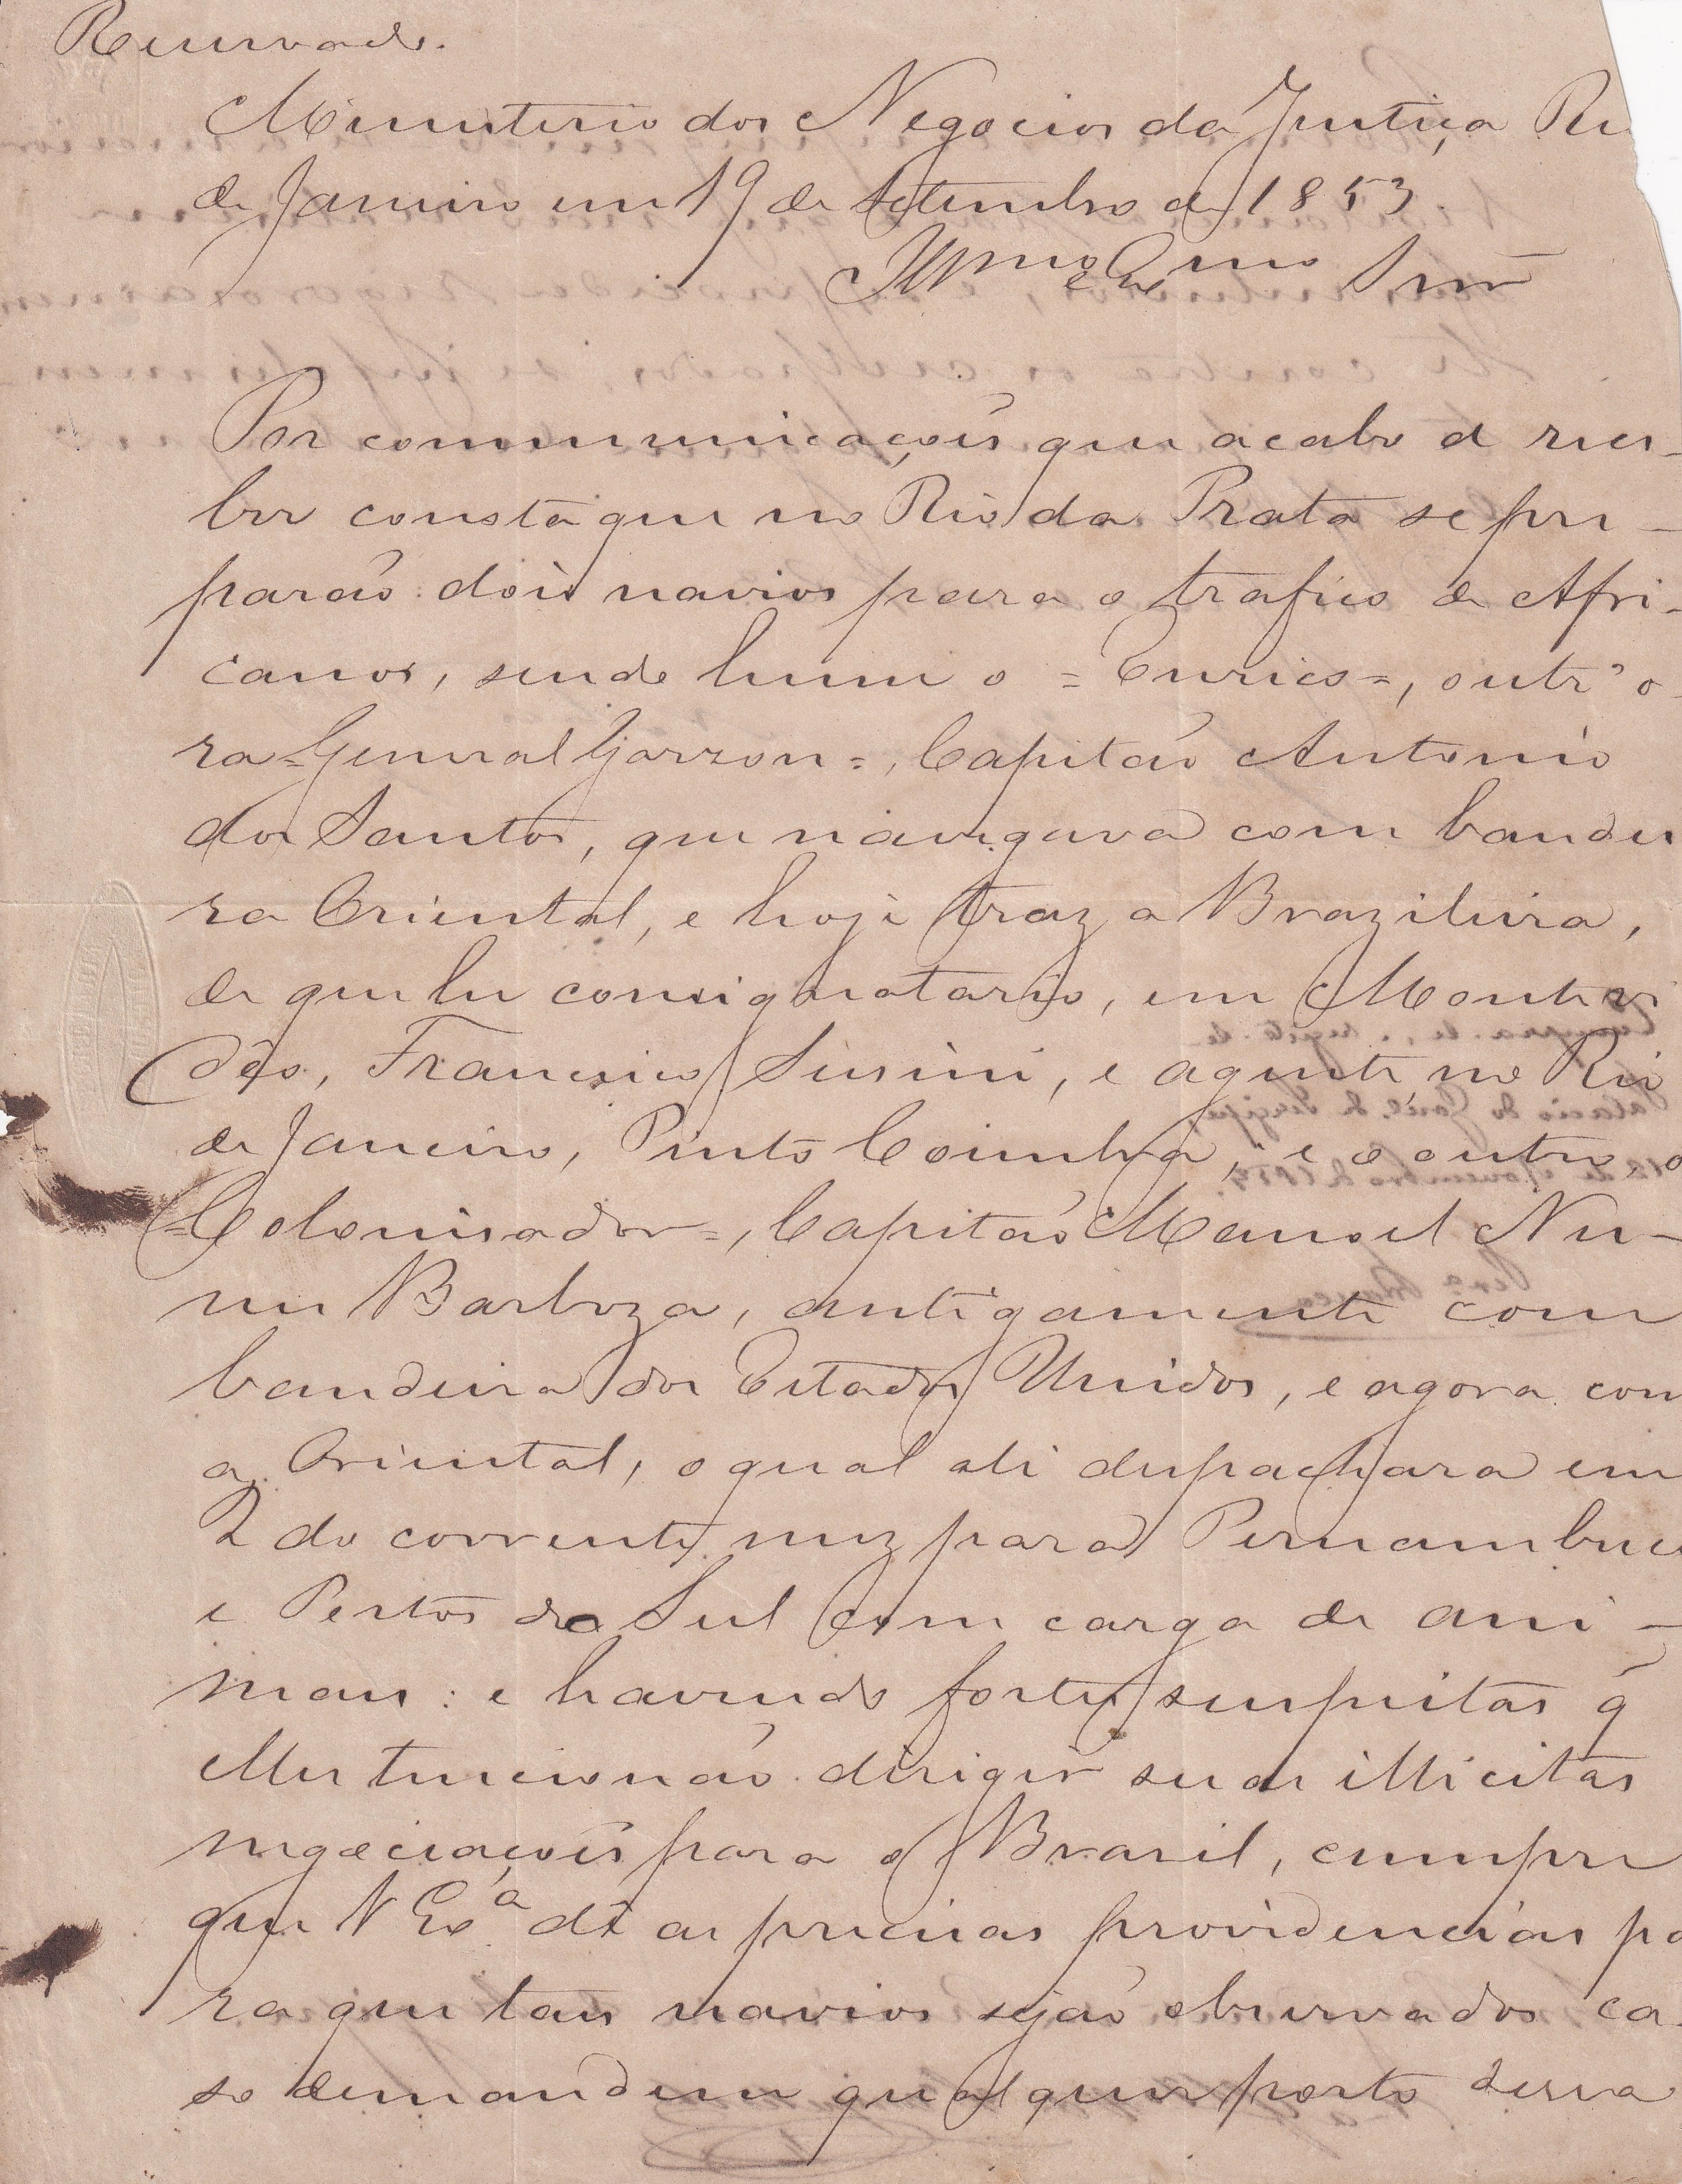 Reservado.
Ministerio dos Negocios da Justiça Rio
de Janeiro em 19 de Setembro de 1853.
Illmo e Exmo Snr
Por communicações que acabo de rece-
ber consta que no Rio da Prata se pre-
parão dois navios para o trafico de Afri-
canos, sendo hum o = Eurico =, outr'o-
ra = General Garzon =, Capitão Antonio
dos Santos, que navegava com bandei
ra Oriental, e hoje traz a Brazileira,
de que he consignatario, em Montevi
déo, Francisco Susini, e agente no Rio
de Janeiro, Pinto Coimbra, e o outro o
= Colonisador =, Capitão Manoel Nu-
nes Barboza, antigamente com
bandeira dos Estados Unidos, e agora com
a Oriental, o qual ali despachara em
2 do corrente mez para Pernambuco
e Portos do Sul com carga de ani-
maes: e havendo fortes suspeitas q̃
elles tencionão dirigir suas illicitas
negociações para o Brasil, cumpre
que V Exª dê as precisas providencias pa
ra que taes navios sejão observados ca-
so demandem qualquer porto dessa